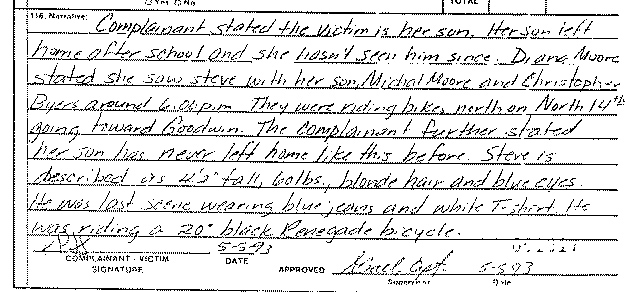 TOTAL
116. Narrative:
Complainant stated the victim is her son. Her son left
home after school and she hasn't seen him since. Diana Moore
stated she saw steve with her son, Michal Moore and Christopher
Byers around 6:00 p.m. They were riding bikes north on North 14th
going toward Goodwin. The complainant further stated
her son has never left home like this before. Steve is
described as 4'2" tall, 60lbs., blonde hair and blue eyes.
He was last scene wearing blue jeans and white T-shirt. He
was riding a 20" black Renegade bicycle.
5-5-93
COMPLAINANT - VICTIM DATE
SIGNATURE
APPROVED Capt. 5-5-93
Supervisor Date